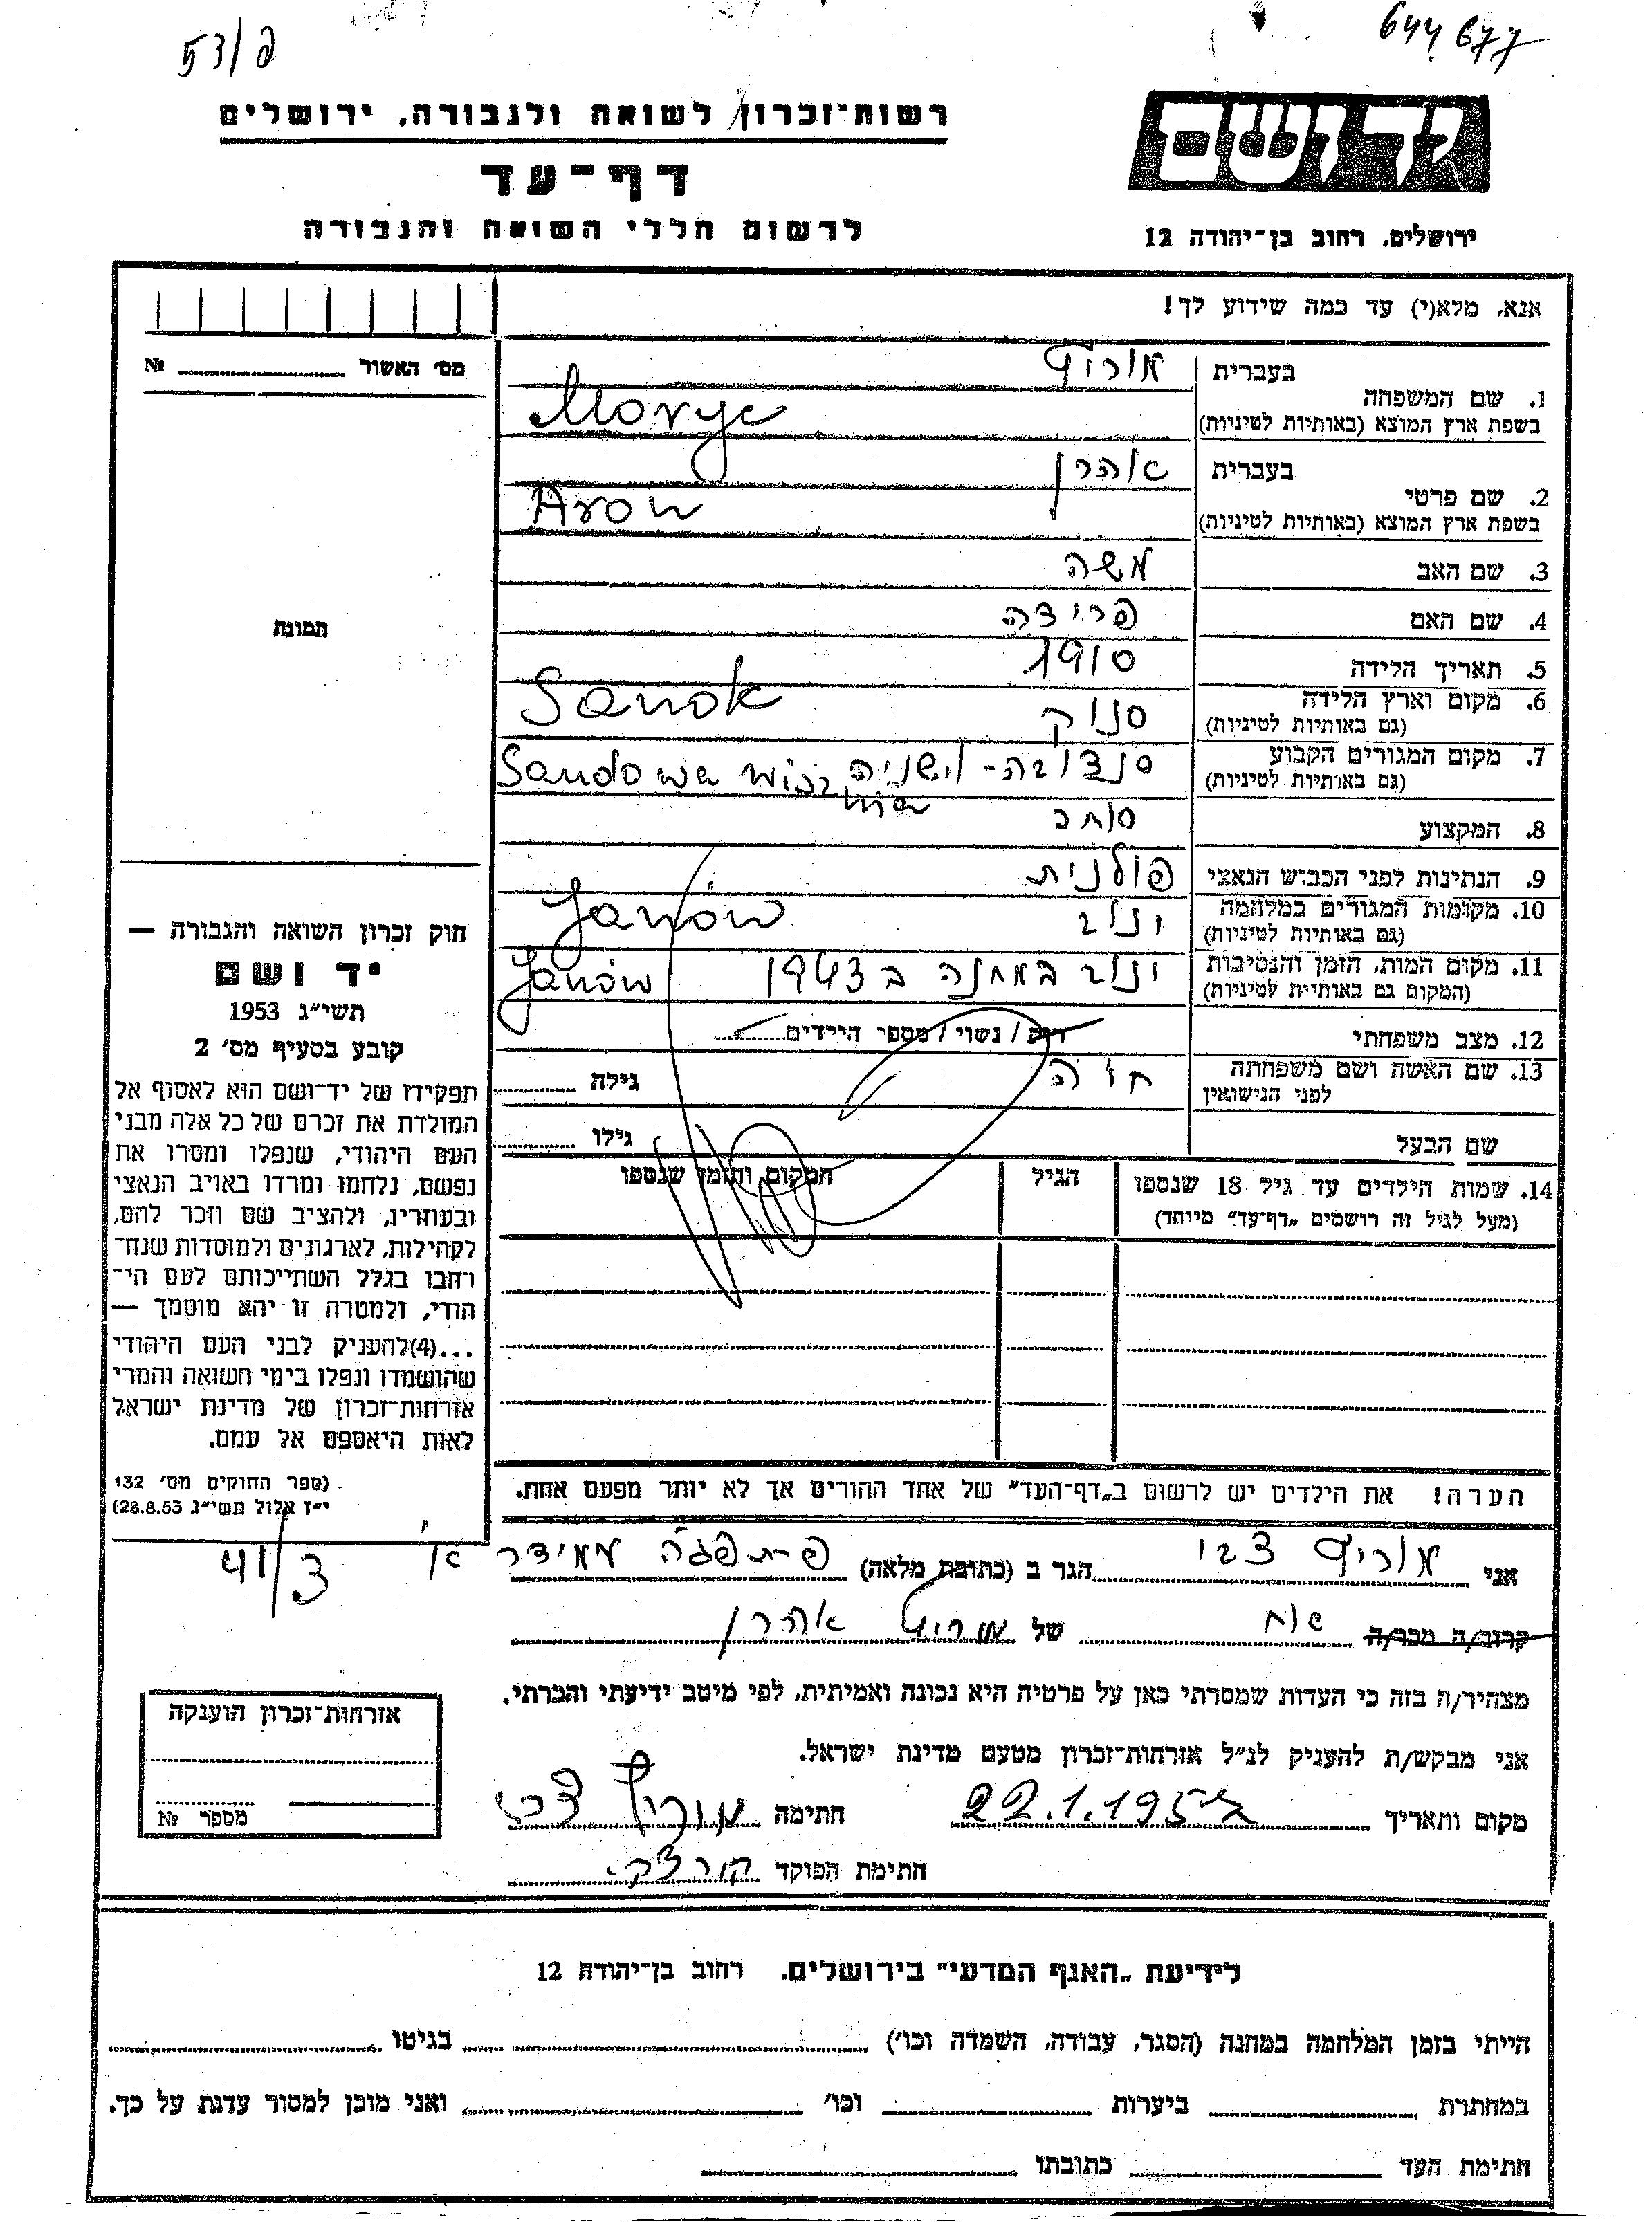 53/פ
644677
רשות־זכרון לשואה ולגבורה, ירושלים
דף־עד
לרשום חללי השואה והגבורה
יד ושם
ירושלים, רחוב בן־יהודה 12
אנא, מלא(י) עד כמה שידוע לך!
מס׳ האשור № 
תמונה
1. שם המשפחה בעברית מוריץ
בשפת ארץ המוצא (באותיות לטיניות) Moryc
2. שם פרטי בעברית אהרן
בשפת ארץ המוצא (באותיות לטיניות) Aron
3. שם האב משה
4. שם האם פרידה
5. תאריך הלידה 1910
6. מקום וארץ הלידה סנוק Sanok
(גם באותיות לטיניות)
7. מקום המגורים הקבוע סנדובה־וישניה Sandowa
(גם באותיות לטיניות)
8. המקצוע סוחר
9. הנתינות לפני הכבוש הנאצי פולנית
10. מקומות המגורים במלחמה ינוב Janów
(גם באותיות לטיניות)
11. מקום המות, הזמן והנסיבות ינוב במחנה ב 1943 Janów
(המקום גם באותיות לטיניות)
12. מצב משפחתי רוק / נשוי / מספר הילדים
13. שם האשה ושם משפחתה לפני הנישואין חיה גילה
שם הבעל גילו
14. שמות הילדים עד גיל 18 שנספו הגיל המקום והזמן שנספו
(מעל לגיל זה רושמים „דף־עד״ מיוחד)
הערה! את הילדים יש לרשום ב„דף־העד״ של אחד ההורים אך לא יותר מפעם אחת.
חוק זכרון השואה והגבורה —
יד ושם
תשי״ג 1953
קובע בסעיף מס׳ 2
תפקידו של יד־ושם הוא לאסוף אל
המולדת את זכרם של כל אלה מבני
העם היהודי, שנפלו ומסרו את
נפשם, נלחמו ומרדו באויב הנאצי
ובעוזריו, ולהציב שם וזכר להם,
לקהילות, לארגונים ולמוסדות שנח־
רחבו בגלל השתייכותם לעם הי־
הודי, ולמטרה זו יהא מוסמך —
...(4)להעניק לבני העם היהודי
שהושמדו ונפלו בימי השואה והמרי
אזרחות־זכרון של מדינת ישראל
לאות היאספם אל עמם.
(ספר החוקים מס׳ 132
י״ז אלול תשי״ג 28.8.53)
אני מוריץ צבי הגר ב (כתובת מלאה) פרת פגה עמידר א׳ 41/3
קרוב/ה מכר/ה אח של מוריץ אהרן
מצהיר/ה בזה כי העדות שמסרתי כאן על פרטיה היא נכונה ואמיתית, לפי מיטב ידיעתי והכרתי.
אני מבקש/ת להעניק לנ״ל אזרחות־זכרון מטעם מדינת ישראל.
מקום ותאריך 22.1.195 חתימה מוריץ צבי
חתימת הפוקד
אזרחות־זכרון הוענקה
מספר №
לידיעת „האגף המדעי״ בירושלים. רחוב בן־יהודה 12
הייתי בזמן המלחמה במחנה (הסגר, עבודה, השמדה וכו׳) בגיטו
במחתרת ביערות וכו׳ ואני מוכן למסור עדות על כך.
חתימת העד כתובתו